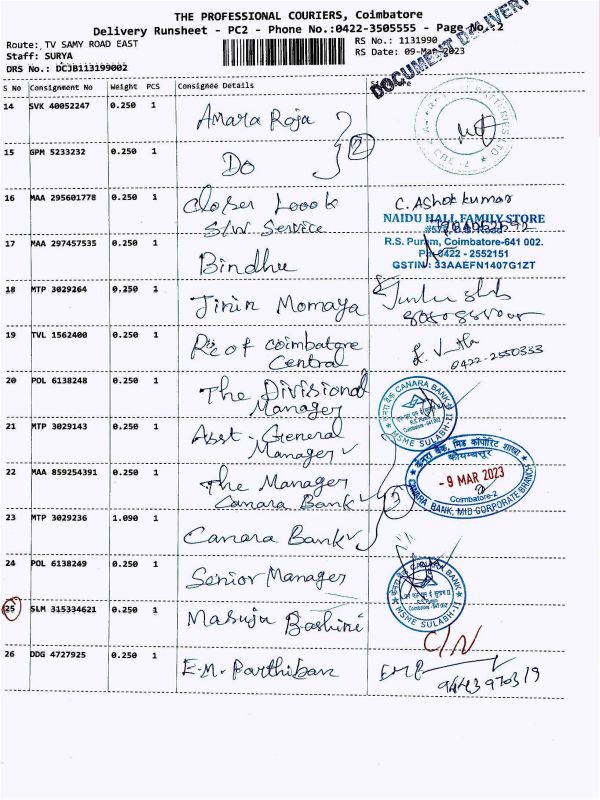 THE PROFESSIONAL COURIERS, Coimbatore
Delivery Runsheet - PC2 - Phone No.:0422-3505555 - Page No.:2
Route: TV SAMY ROAD EAST
RS No.: 1131990
Staff: SURYA
RS Date: 09-Mar-2023
DRS No.: DCJB113199002
DOCUMENT DELIVERY
S No Consignment No Weight PCS Consignee Details Signature
14 SVK 40052247 0.250 1 Amara Raja
15 GPM 5233232 0.250 1 Do
2
16 MAA 295601778 0.250 1 Closer Loook
S/W Service
C. Ashok kumar
NAIDU HALL FAMILY STORE
R.S. Puram, Coimbatore-641 002.
Ph:0422 - 2552151
GSTIN: 33AAEFN1407G1ZT
17 MAA 297457535 0.250 1 Bindhu
18 MTP 3029264 0.250 1 Jinin Momaya
19 TVL 1562400 0.250 1 Rc of Coimbatore
Central
0422-2550333
20 POL 6138248 0.250 1 The Divisional
Manager
CANARA BANK
MSME SULABH-II
21 MTP 3029143 0.250 1 Asst-General
Manager
22 MAA 859254391 0.250 1 The Manager
Canara Bank
केनरा बैंक, मिड कॉर्पोरेट शाखा
कोयम्बत्तूर
- 9 MAR 2023
Coimbatore-2
CANARA BANK, MID CORPORATE BRANCH
23 MTP 3029236 1.090 1 Canara Bank
24 POL 6138249 0.250 1 Senior Manager
CANARA BANK
MSME SULABH-II
25 SLM 315334621 0.250 1 Masuja Bashini
C/N
26 DDG 4727925 0.250 1 E.M. Parthiban